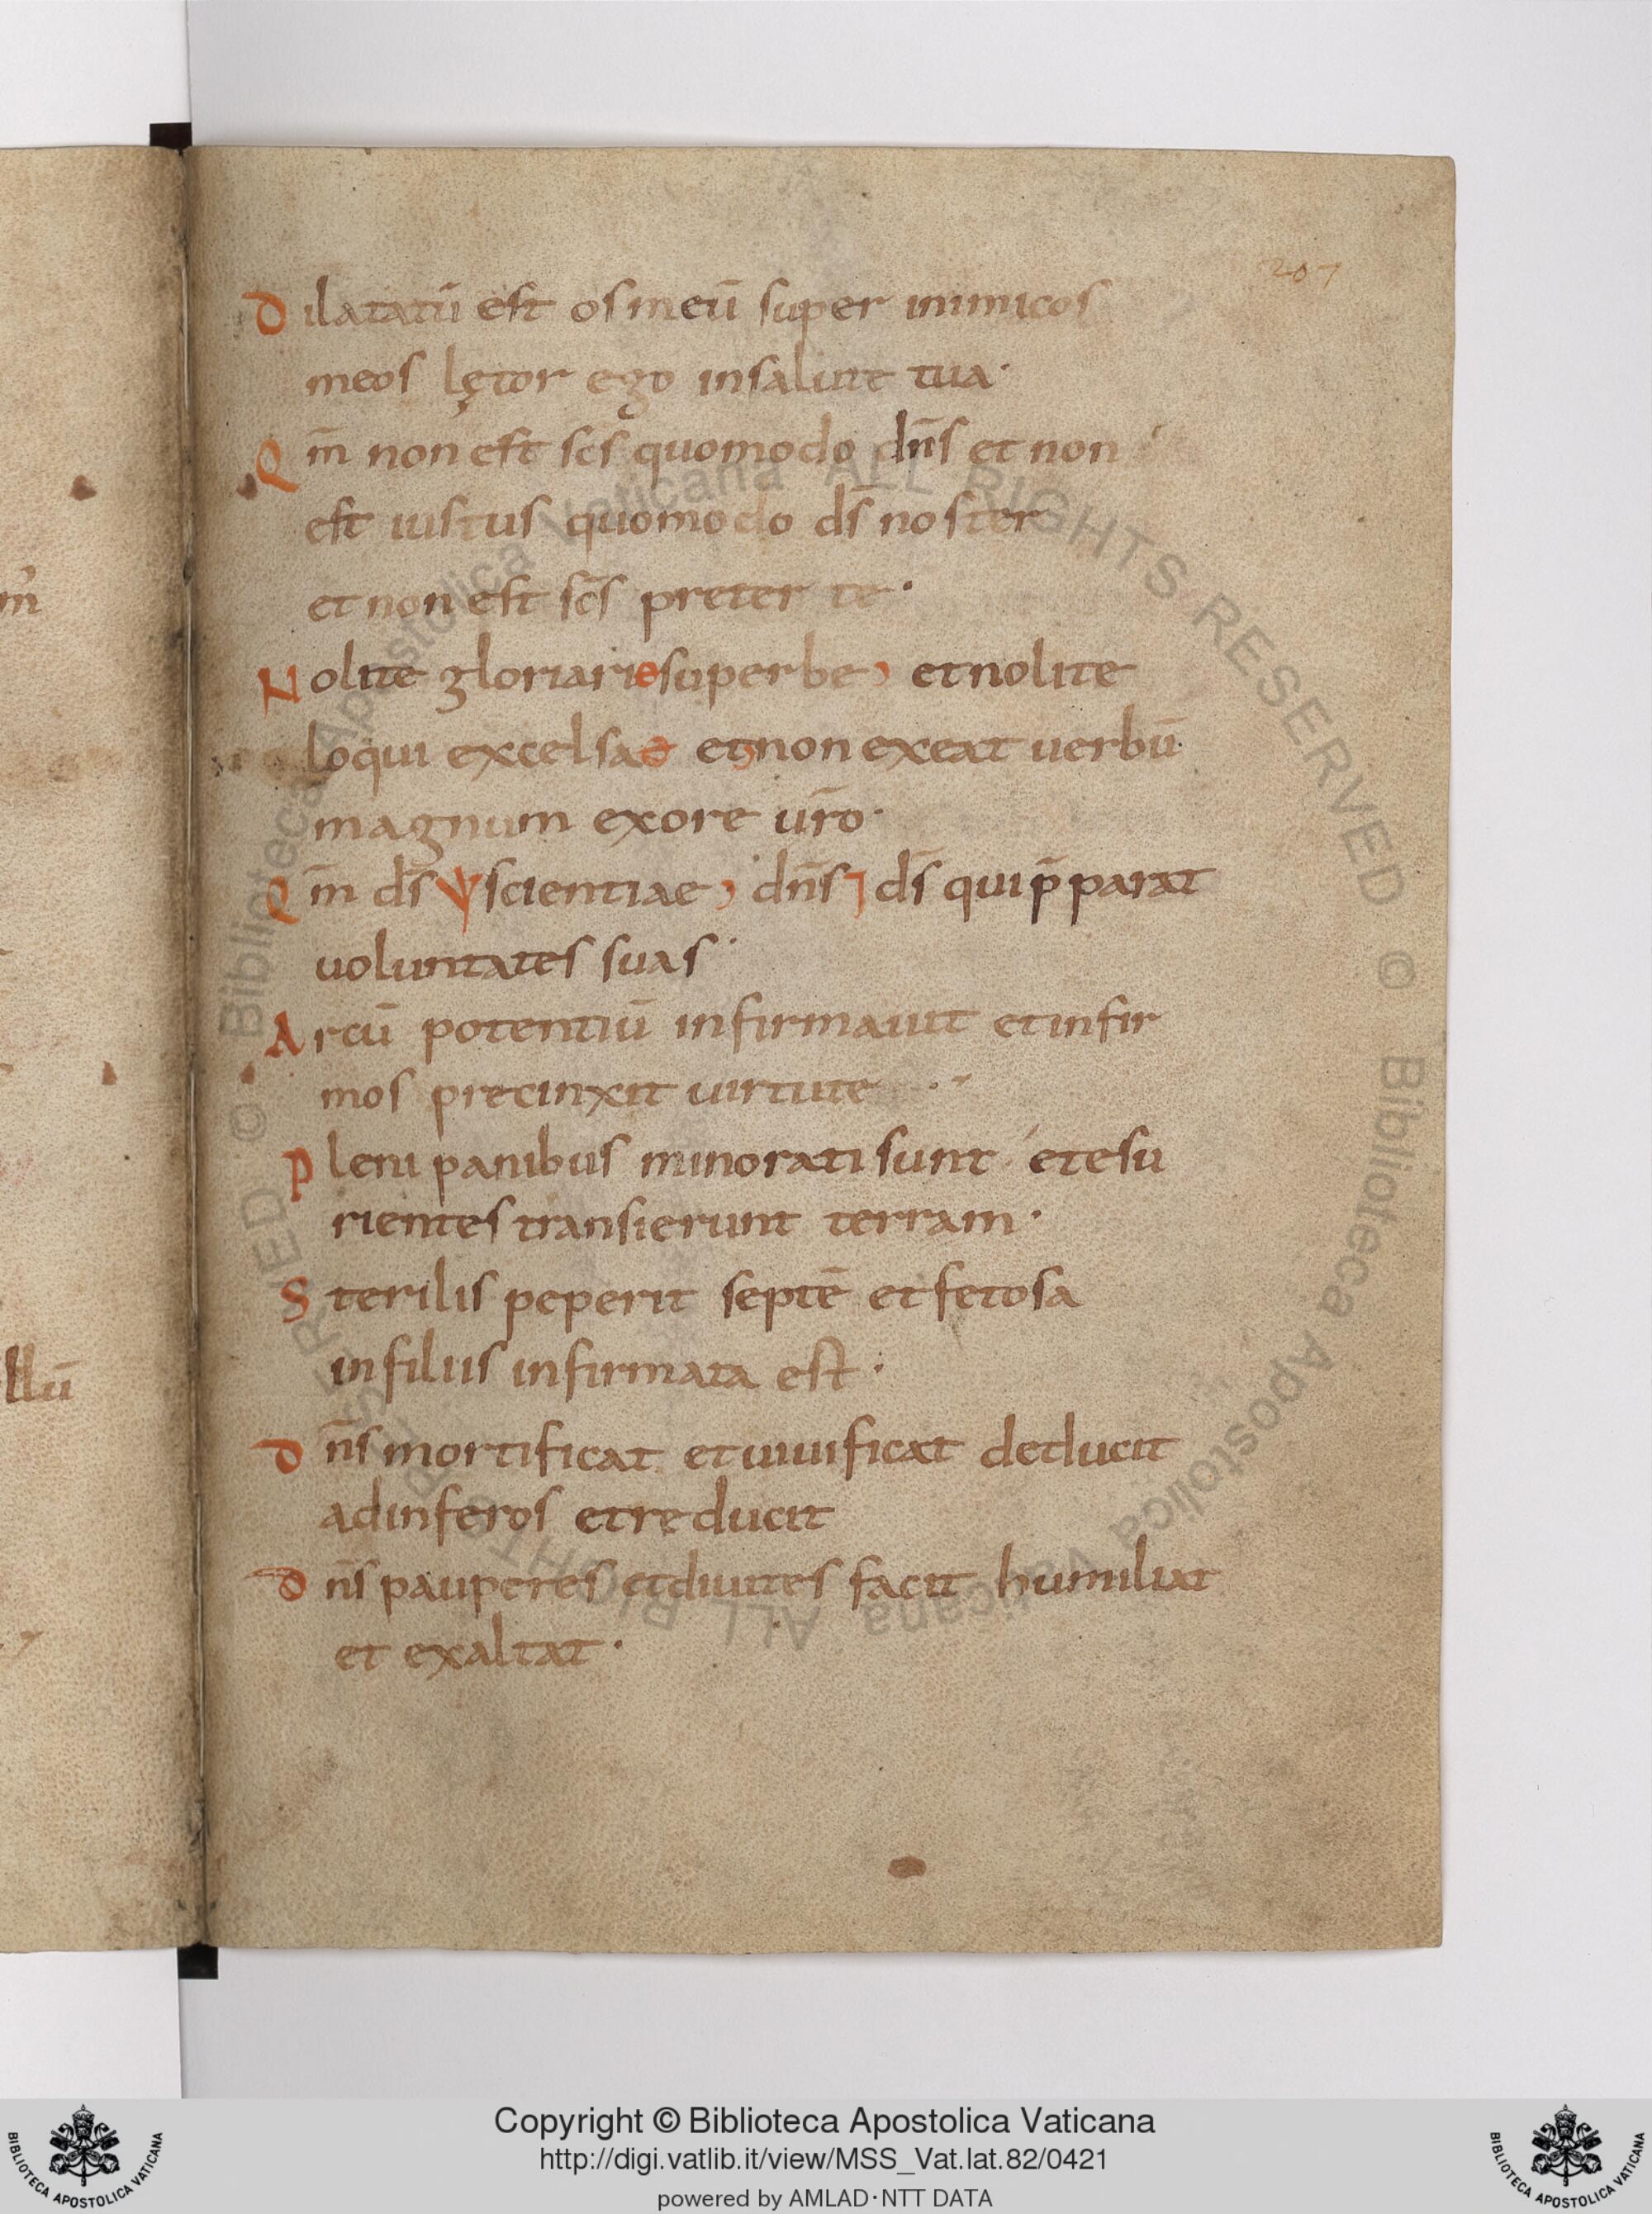 207
Dilatatū est os meū super inimicos
meos lętor ego in salute tua·
Qm̄ non est scs̄ quomodo dn̄s et non
est iustus quomodo ds̄ noster
et non est scs̄ preter te·
Nolite gloriari superbe, et nolite
loqui excelsa et non exeat uerbū
magnum ex ore ur̄o·
Qm̄ ds̄ scientiae, dn̄s ds̄ qui p̄parat
uoluntates suas·
Arcū potentiū infirmauit et infir
mos precinxit uirtute
Pleni panibus minorati sunt et esu
rientes transierunt terram·
Sterilis peperit septē et fetosa
in filiis infirmata est·
Dn̄s mortificat et uiuificat deducit
ad inferos et reducit
Dn̄s pauperes et diuites facit humiliat
et exaltat·
m̄
llū
Copyright © Biblioteca Apostolica Vaticana
http://digi.vatlib.it/view/MSS_Vat.lat.82/0421
powered by AMLAD·NTT DATA
BIBLIOTECA APOSTOLICA VATICANA
BIBLIOTECA APOSTOLICA VATICANA
© Biblioteca Apostolica Vaticana ALL RIGHTS RESERVED © Biblioteca Apostolica Vaticana ALL RIGHTS RESERVED